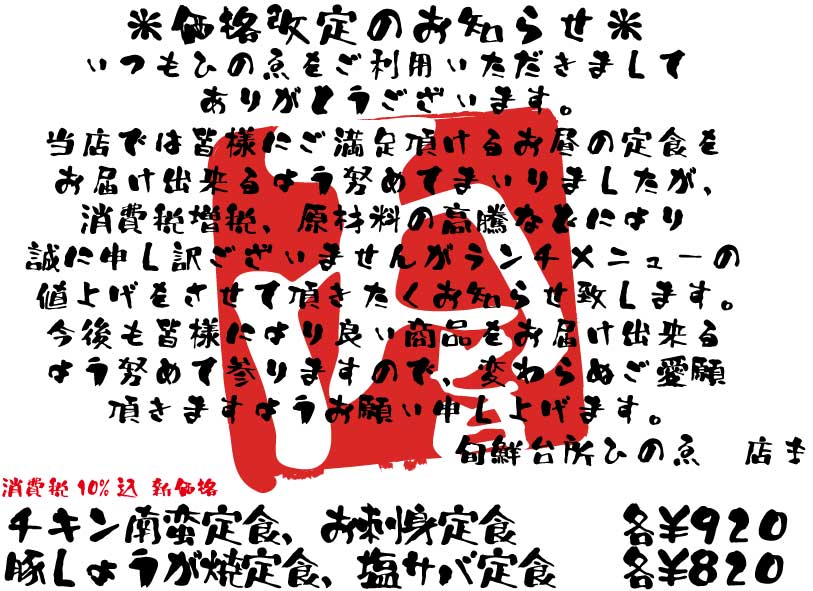 ※価格改定のお知らせ※
いつもひのゑをご利用いただきまして
ありがとうございます。
当店では皆様にご満足頂けるお昼の定食を
お届け出来るよう努めてまいりましたが、
消費税増税、原材料の高騰などにより
誠に申し訳ございませんがランチメニューの
値上げをさせて頂きたくお知らせ致します。
今後も皆様により良い商品をお届け出来る
よう努めて参りますので、変わらぬご愛願
頂きますようお願い申し上げます。
旬鮮台所ひのゑ 店主
消費税10%込 新価格
チキン南蛮定食、お刺身定食 各¥920
豚しょうが焼定食、塩サバ定食 各¥820